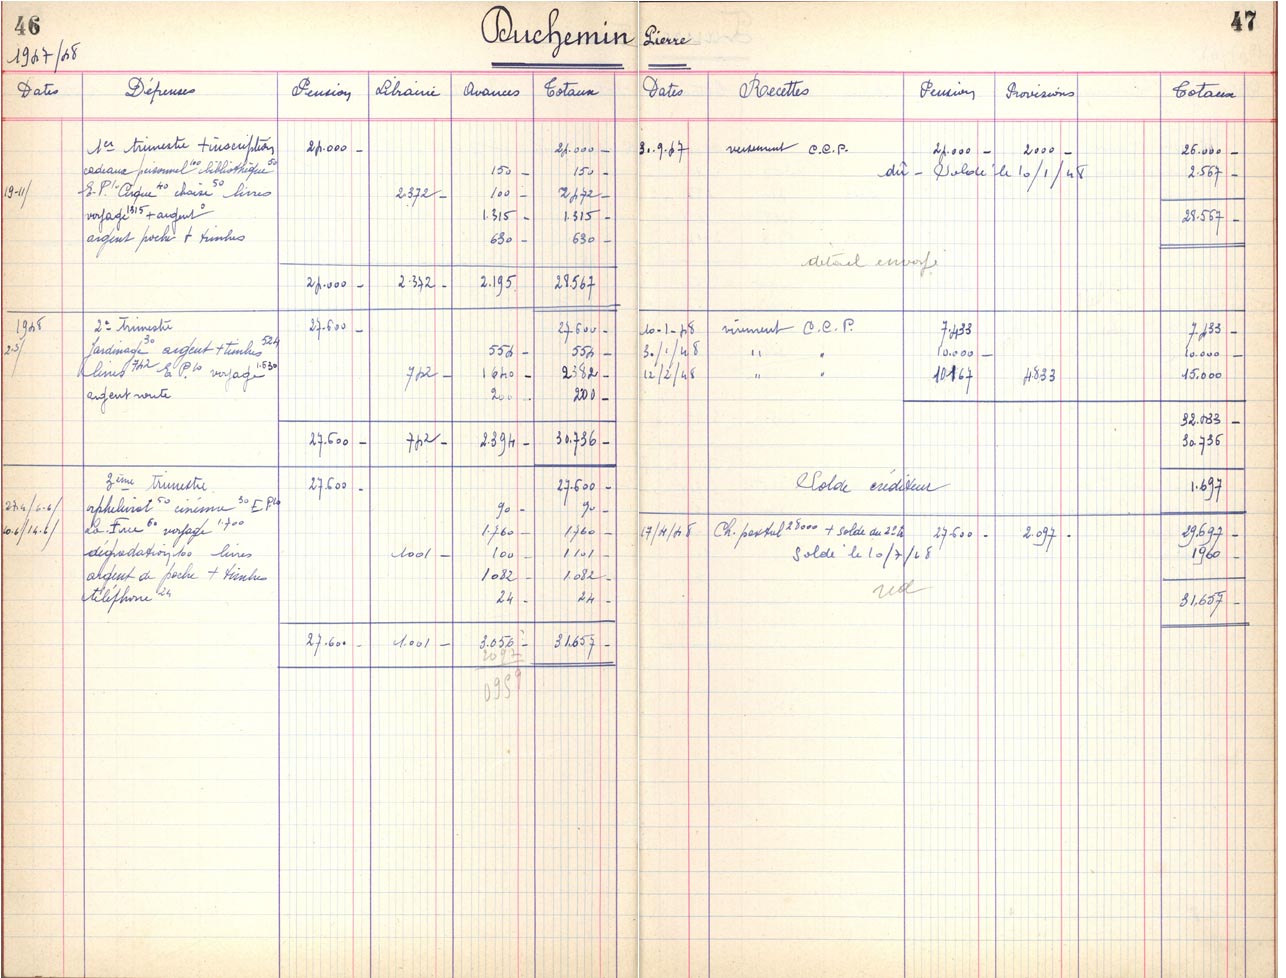 46
1947/48
Duchemin Pierre
47
Dates Dépenses Pension Librairie Avances Totaux
1er trimestre + inscription 24.000 — 24.000 —
cadeaux personnel 100 bibliothèque 50 150 — 150 —
19-11/ E.P. 10 Cirque 40 chaise 50 livres 2.372 — 100 — 2472 —
voyage 1315 + argent 1.315 — 1.315 —
argent poche + timbres 630 — 630 —
24.000 — 2.372 — 2.195 28.567
1948 2e trimestre 27.600 — 27.600 —
2-3/ Jardinage 30 argent + timbres 524 554 — 554 —
livres 742 E.P. 10 voyage 1.630 742 — 1640 — 2382 —
argent route 200 — 200 —
27.600 — 742 — 2.394 — 30.736 —
3ème trimestre 27.600 — 27.600 —
27.4/6.6/ orphelinat 50 cinéma 30 E.P. 10 90 — 90 —
10.6/16.6/ La Frie 60 voyage 1.700 1.760 — 1.760 —
dégradation 100 livres 1001 — 100 — 1.101 —
argent de poche + timbres 1082 — 1.082 —
téléphone 24 24 — 24 —
27.600 — 1.001 — 3.056 — 31.657 —
2097
0959
Dates Recettes Pension Provisions Totaux
30.9.47 versement C.C.P. 24.000 — 2000 — 26.000 —
dû — Soldé le 10/1/48 2.567 —
28.567 —
détail envoyé
10-1-48 virement C.C.P. 7.433 7.433 —
30/1/48 " " 10.000 — 10.000 —
12/2/48 " " 10167 4833 15.000
32.433
30.736
Solde créditeur 1.697
17/4/48 Ch. postal 28000 + solde du 2e tr 27.600 — 2.097 — 29.697 —
Soldé le 10/7/48 1960 —
red
31.657 —